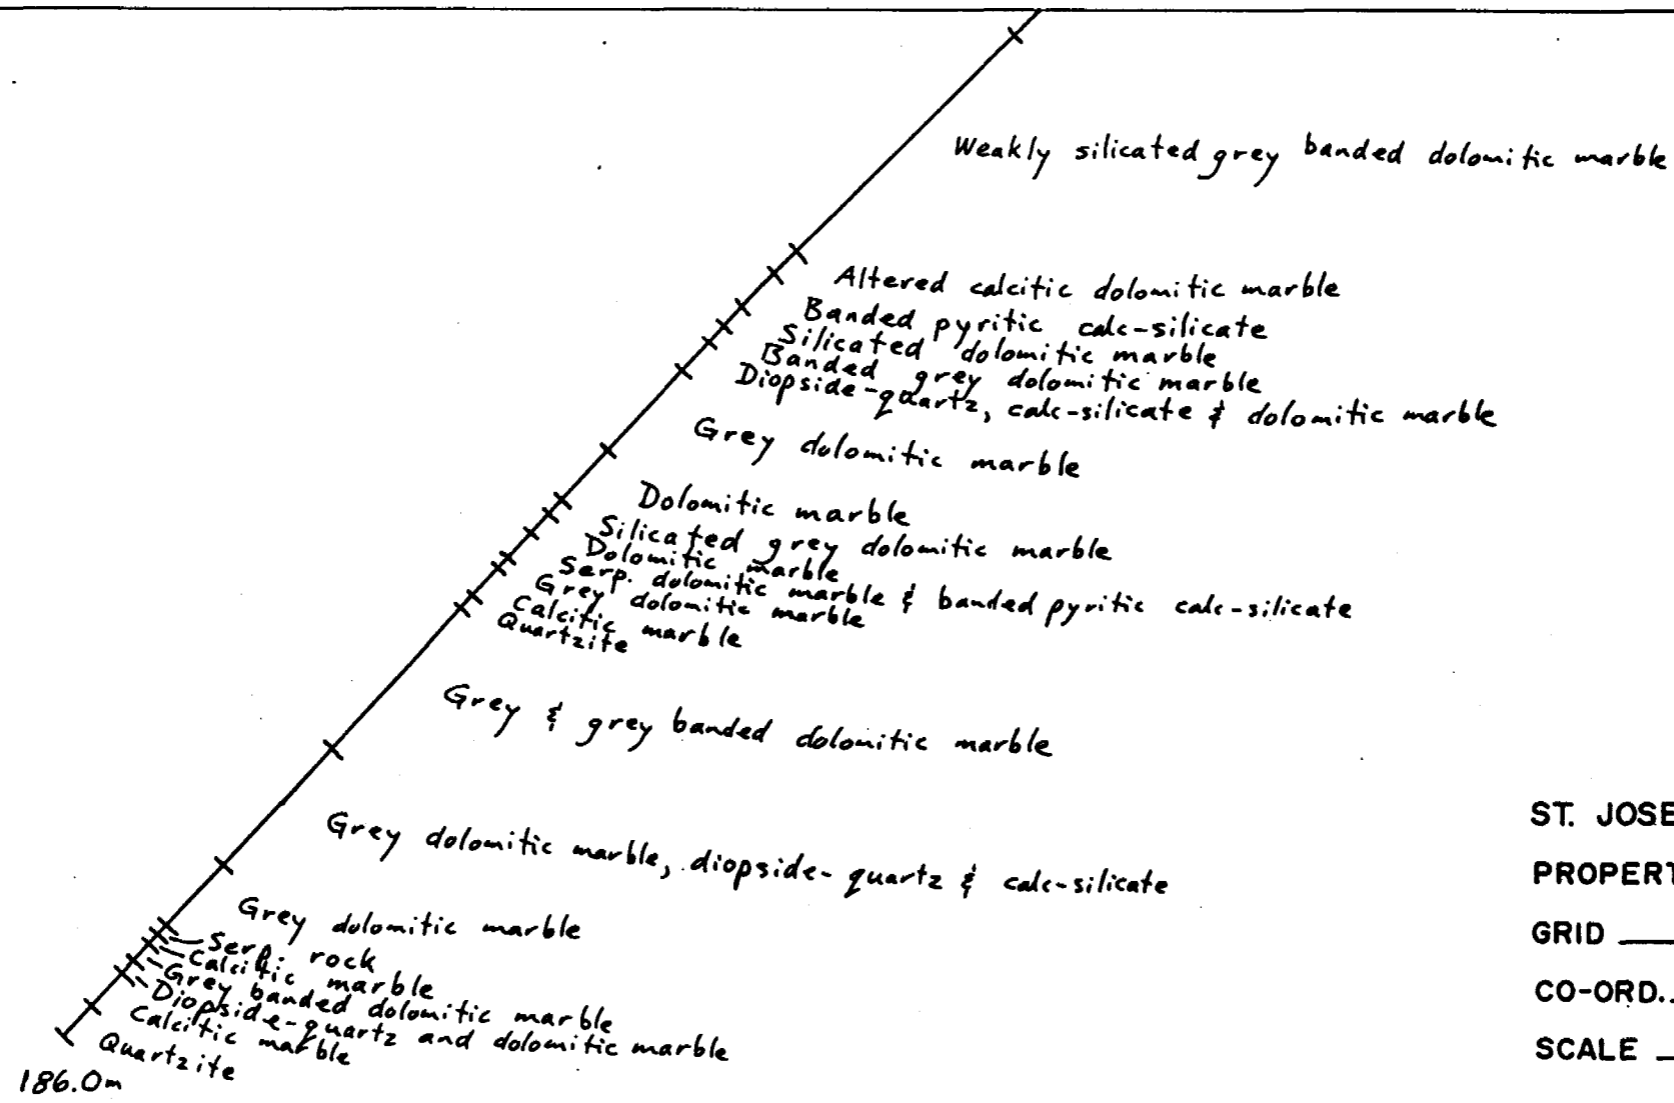 Weakly silicated grey banded dolomitic marble
Altered calcitic dolomitic marble
Banded pyritic calc-silicate
Silicated dolomitic marble
Banded grey dolomitic marble
Diopside-quartz, calc-silicate & dolomitic marble
Grey dolomitic marble
Dolomitic marble
Silicated grey dolomitic marble
Dolomitic marble
Serp. dolomitic marble & banded pyritic calc-silicate
Grey dolomitic marble
Calcitic marble
Quartzite
Grey & grey banded dolomitic marble
Grey dolomitic marble, diopside-quartz & calc-silicate
Grey dolomitic marble
Serp. rock
Calcitic marble
Grey banded dolomitic marble
Diopside-quartz and dolomitic marble
Calcitic marble
Quartzite
186.0m
ST. JOSE
PROPERT
GRID
CO-ORD.
SCALE